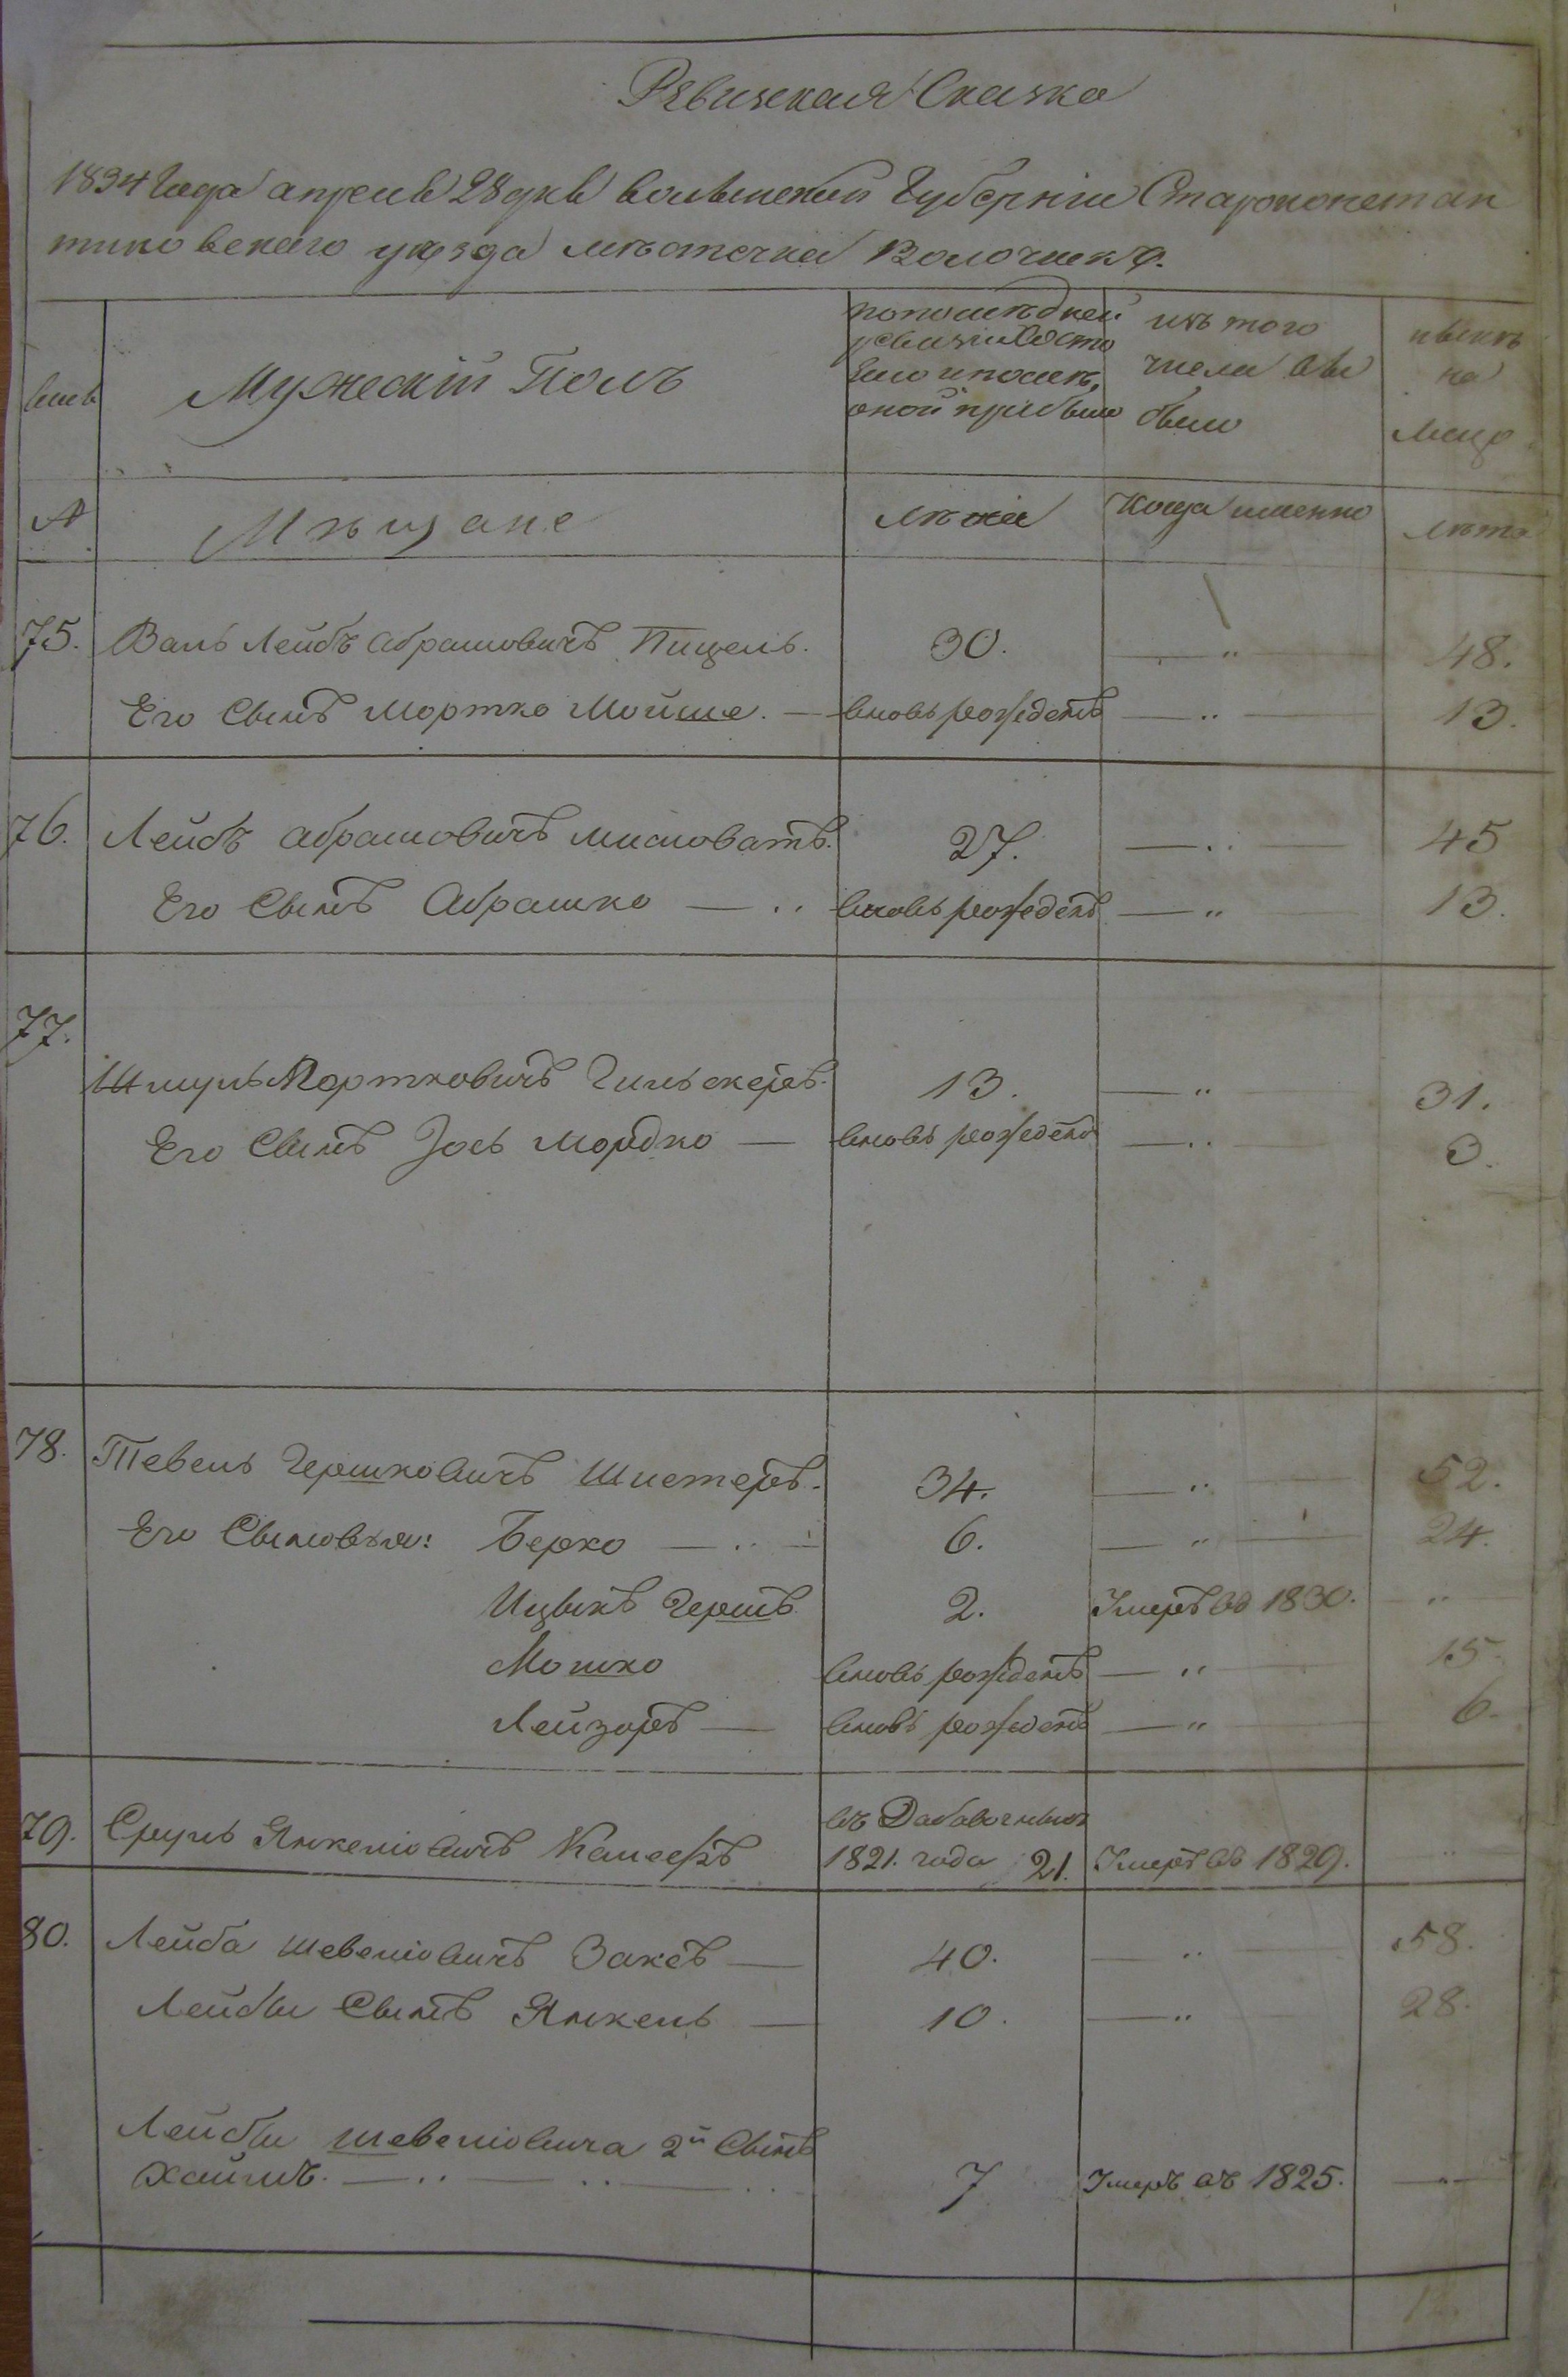 Ревизская Сказка
1834 года апреля 28 дня волынской Губернїи Староконстан
тиновскаго уезда мѣстечка Волочиск
Мужескїй Полъ
по последней
ревизїи состо
яло и после
оной прибыло
изъ того
числа вы
было
ныне
на
лицо
№
Мѣщане
лѣта
Когда именно
лѣта
75. Валь Лейбъ Абрамовичъ Пищель. 30. — " — 48.
Его Сынъ Мортко Мойше. — вновь рожденъ — " — 13.
76. Лейбъ Абрамовичъ 27. — " — 45
Его Сынъ Абрашко — " вновь рожденъ — " — 13.
77.
Шмуль Мортковичъ 13. — " — 31.
Его Сынъ Іось Мордко — вновь рожденъ — " — 3.
78. Тевель Гершковичъ Шистеръ. 34. — " — 52.
Его Сыновья: Берко — " — 6. — " — 24.
Ицыкъ Гершъ 2. Умеръ въ 1830. "
Мошко вновь рожденъ — " — 15.
Лейзоръ — вновь рожденъ — " — 6.
въ Дабавочныхъ
79. Сруль Янкеліовичъ 1821. года 21. Умеръ въ 1829. "
80. Лейба Шевеліовичъ Заксъ — 40. — " — 58.
Лейбы Сынъ Янкель — 10. — " — 28.
Лейбы Шевеліовича 2й Сынъ
Хаимъ. — " — " — " 7 Умеръ въ 1825. — " —
12.